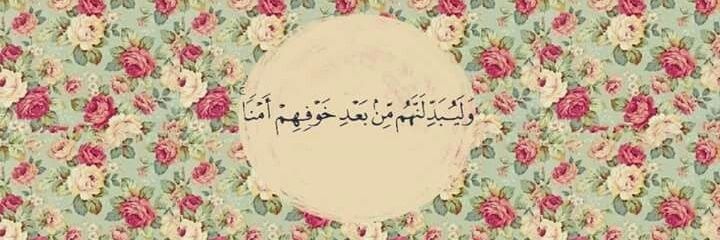 وَلَيُبَدِّلَنَّهُم مِّنۢ بَعْدِ خَوْفِهِمْ أَمْنًا ۚ